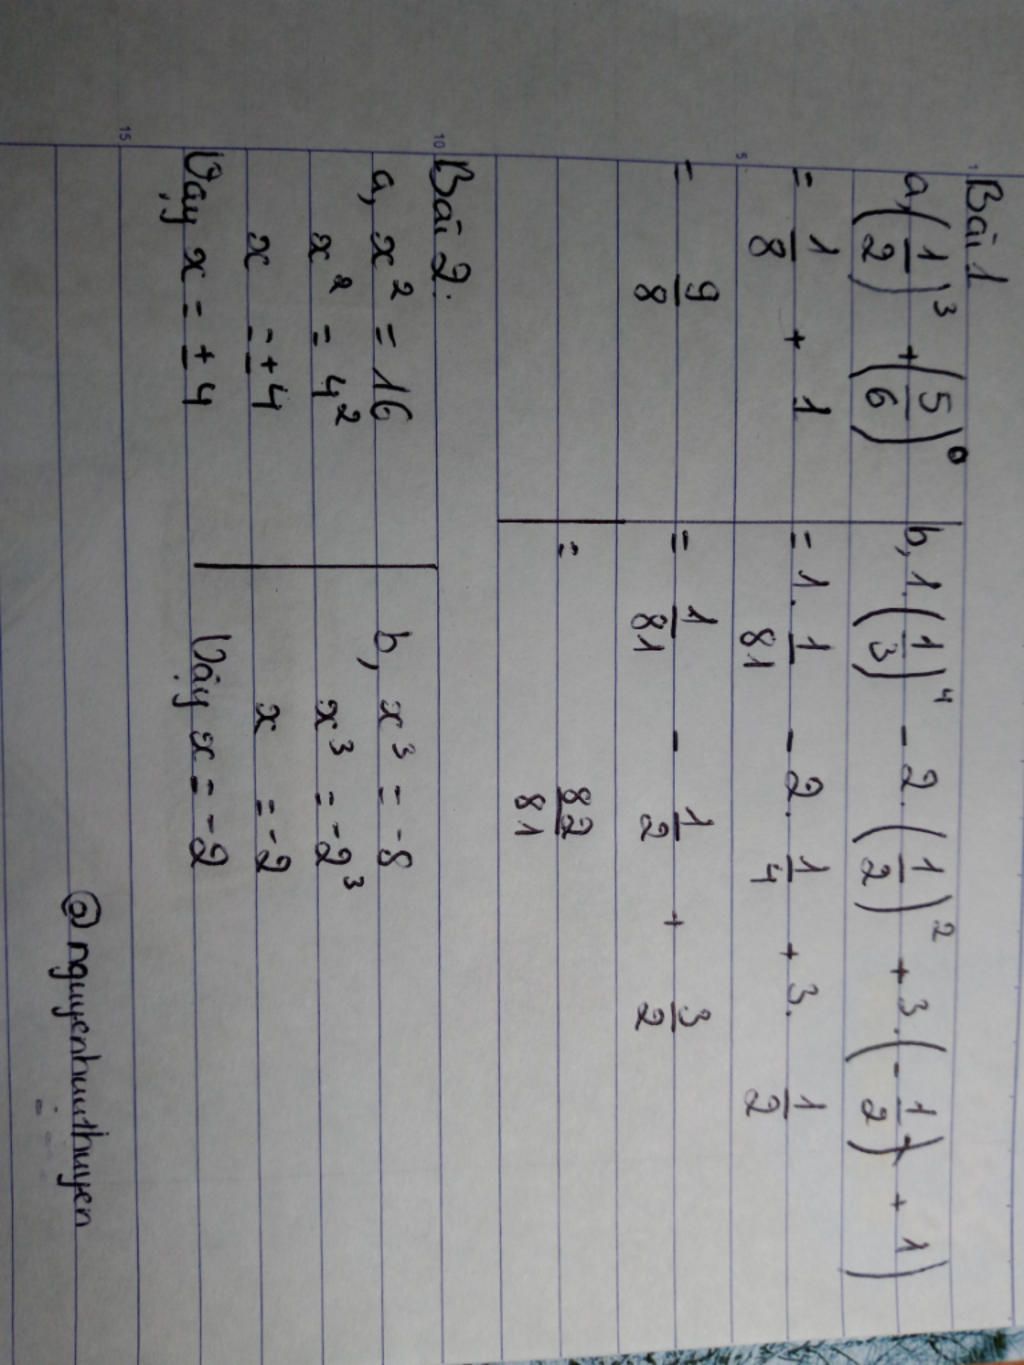 Bài 1
a, (1/2)³ + (5/6)⁰
= 1/8 + 1
= 9/8
b, 1.(1/3)⁴ - 2.(1/2)² + 3.(-1/2) + 1)
= 1. 1/81 - 2. 1/4 + 3. 1/2
= 1/81 - 1/2 + 3/2
= 82/81
Bài 2:
a, x² = 16
x² = 4²
x = ±4
Vậy x = ±4
b, x³ = -8
x³ = -2³
x = -2
Vậy x = -2
@nguyenhuuthuyen
1
5
10
15